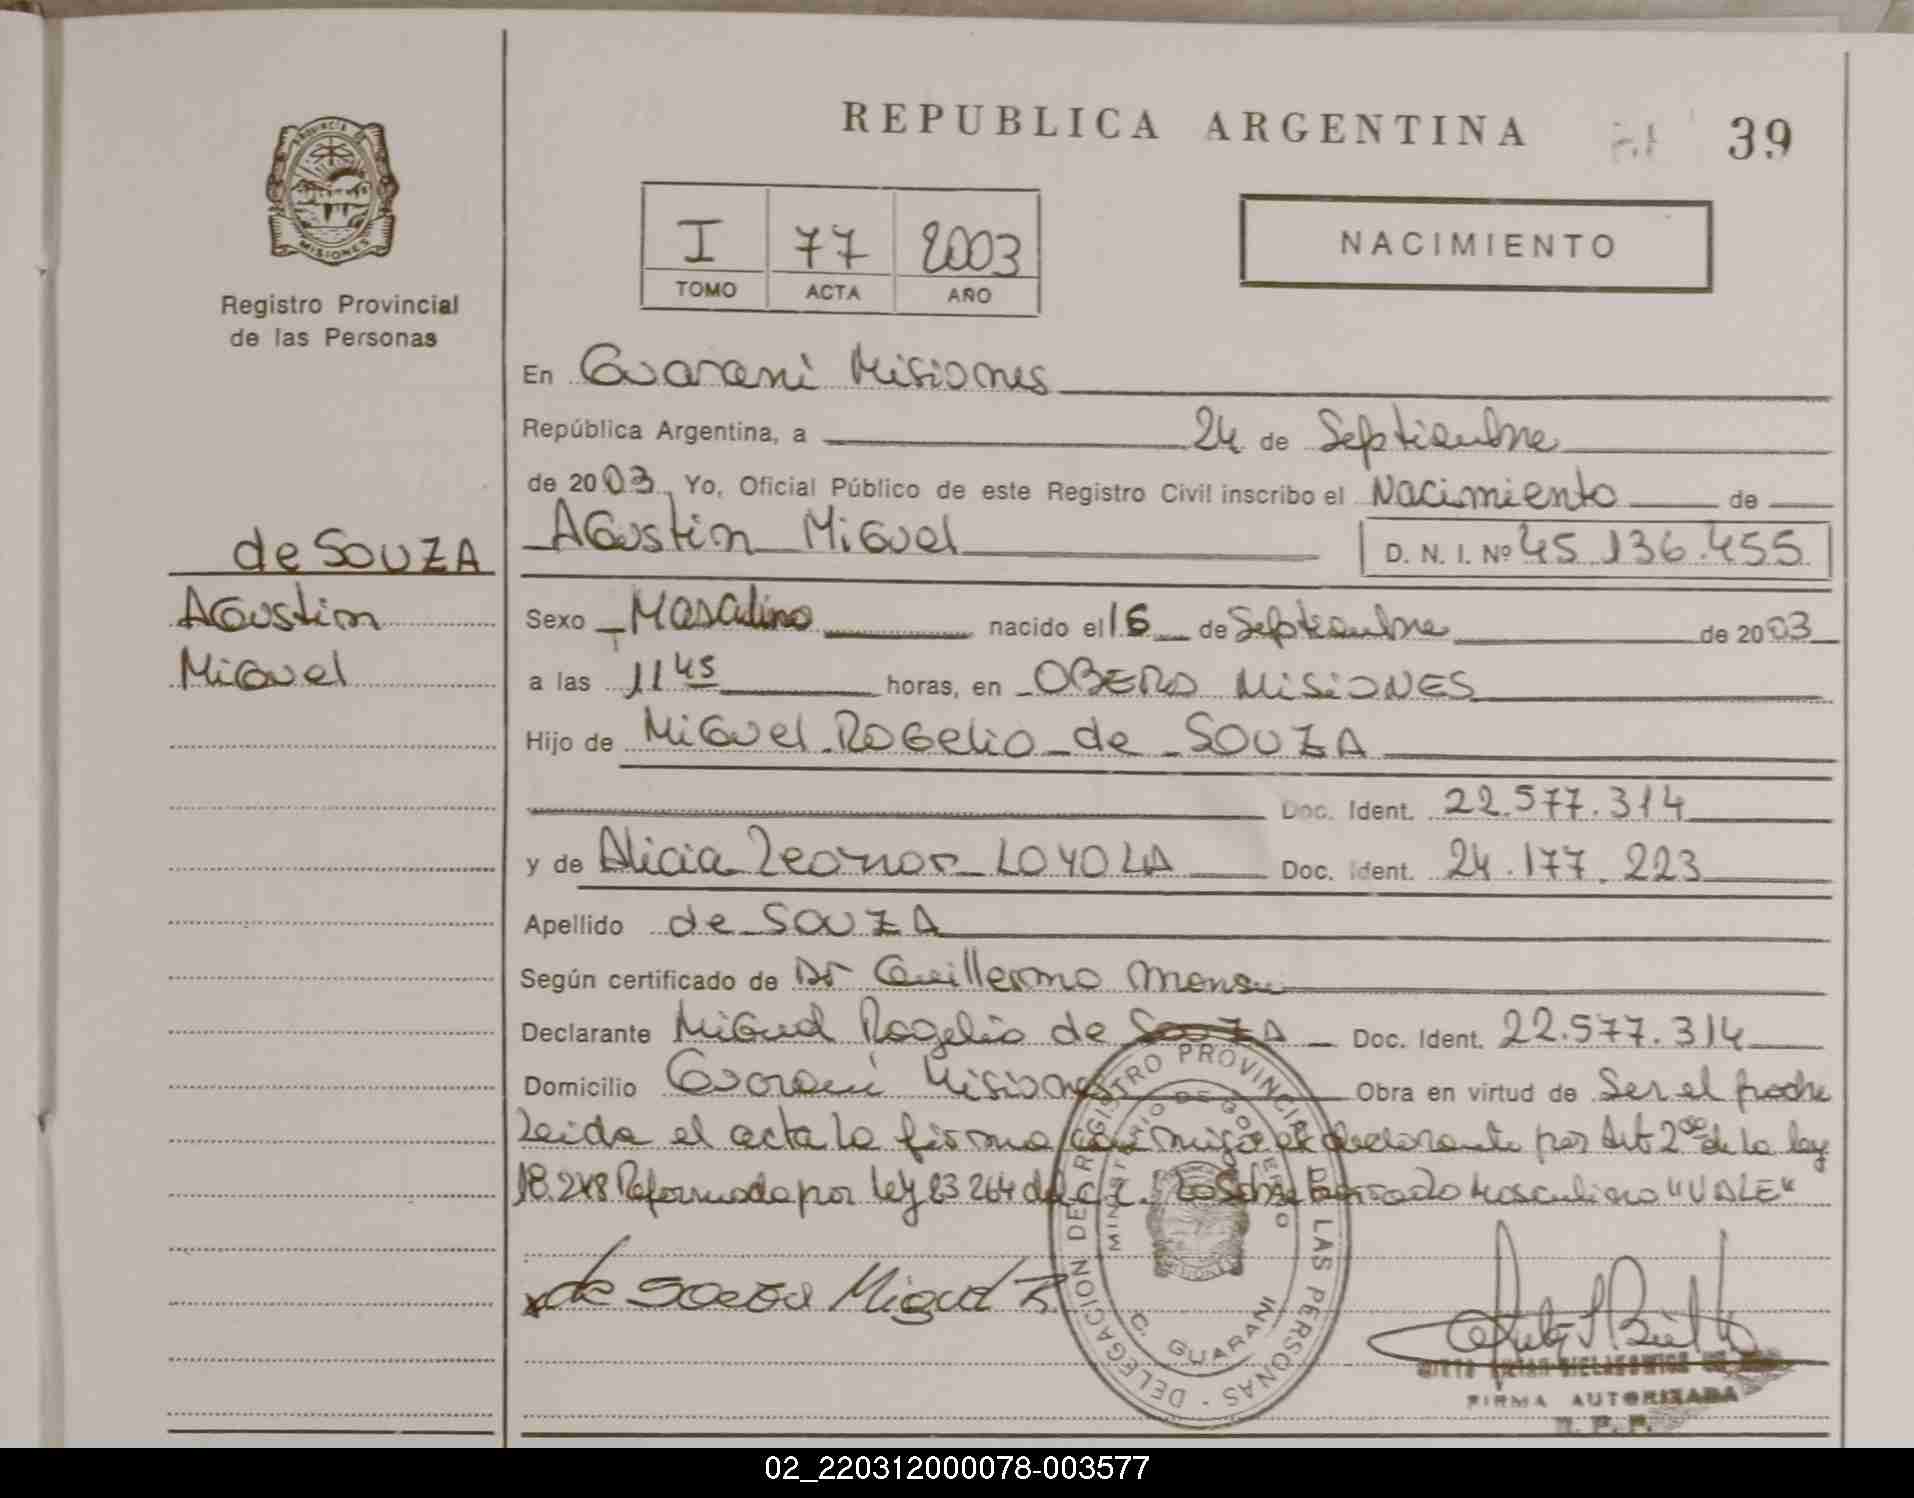 REPUBLICA ARGENTINA
39
PROVINCIA DE
MISIONES
Registro Provincial
de las Personas
I 77 2003
TOMO ACTA AÑO
NACIMIENTO
En Guarani Misiones
República Argentina, a 24 de Septiembre
de 2003 Yo, Oficial Público de este Registro Civil inscribo el Nacimiento de
de SOUZA
Agustin
Miguel
Agustin Miguel D. N. I. Nº 45.136.455
Sexo Masculino nacido el 16 de Septiembre de 2003
a las 11 45 horas, en OBERA MISIONES
Hijo de Miguel Rogelio de SOUZA
Doc. Ident. 22.577.314
y de Alicia Leonor LOYOLA Doc. Ident. 24.177.223
Apellido de SOUZA
Según certificado de Dr Guillermo
Declarante Miguel Rogelio de SouZA Doc. Ident. 22.577.314
Domicilio Guarani Misiones Obra en virtud de Ser el padre
Leida el acta la firma conmigo el declarante por Art 2 de la ley
18.248 Reformada por ley 23264 del C.C. Lo Sobre Borrado Masculino "VALE"
de Souza Miguel R
DELEGACION DE REGISTRO PROVINCIAL DE LAS PERSONAS
MINISTERIO DE GOBIERNO
C. GUARANI
FIRMA AUTORIZADA
R. P. P.
02_220312000078-003577